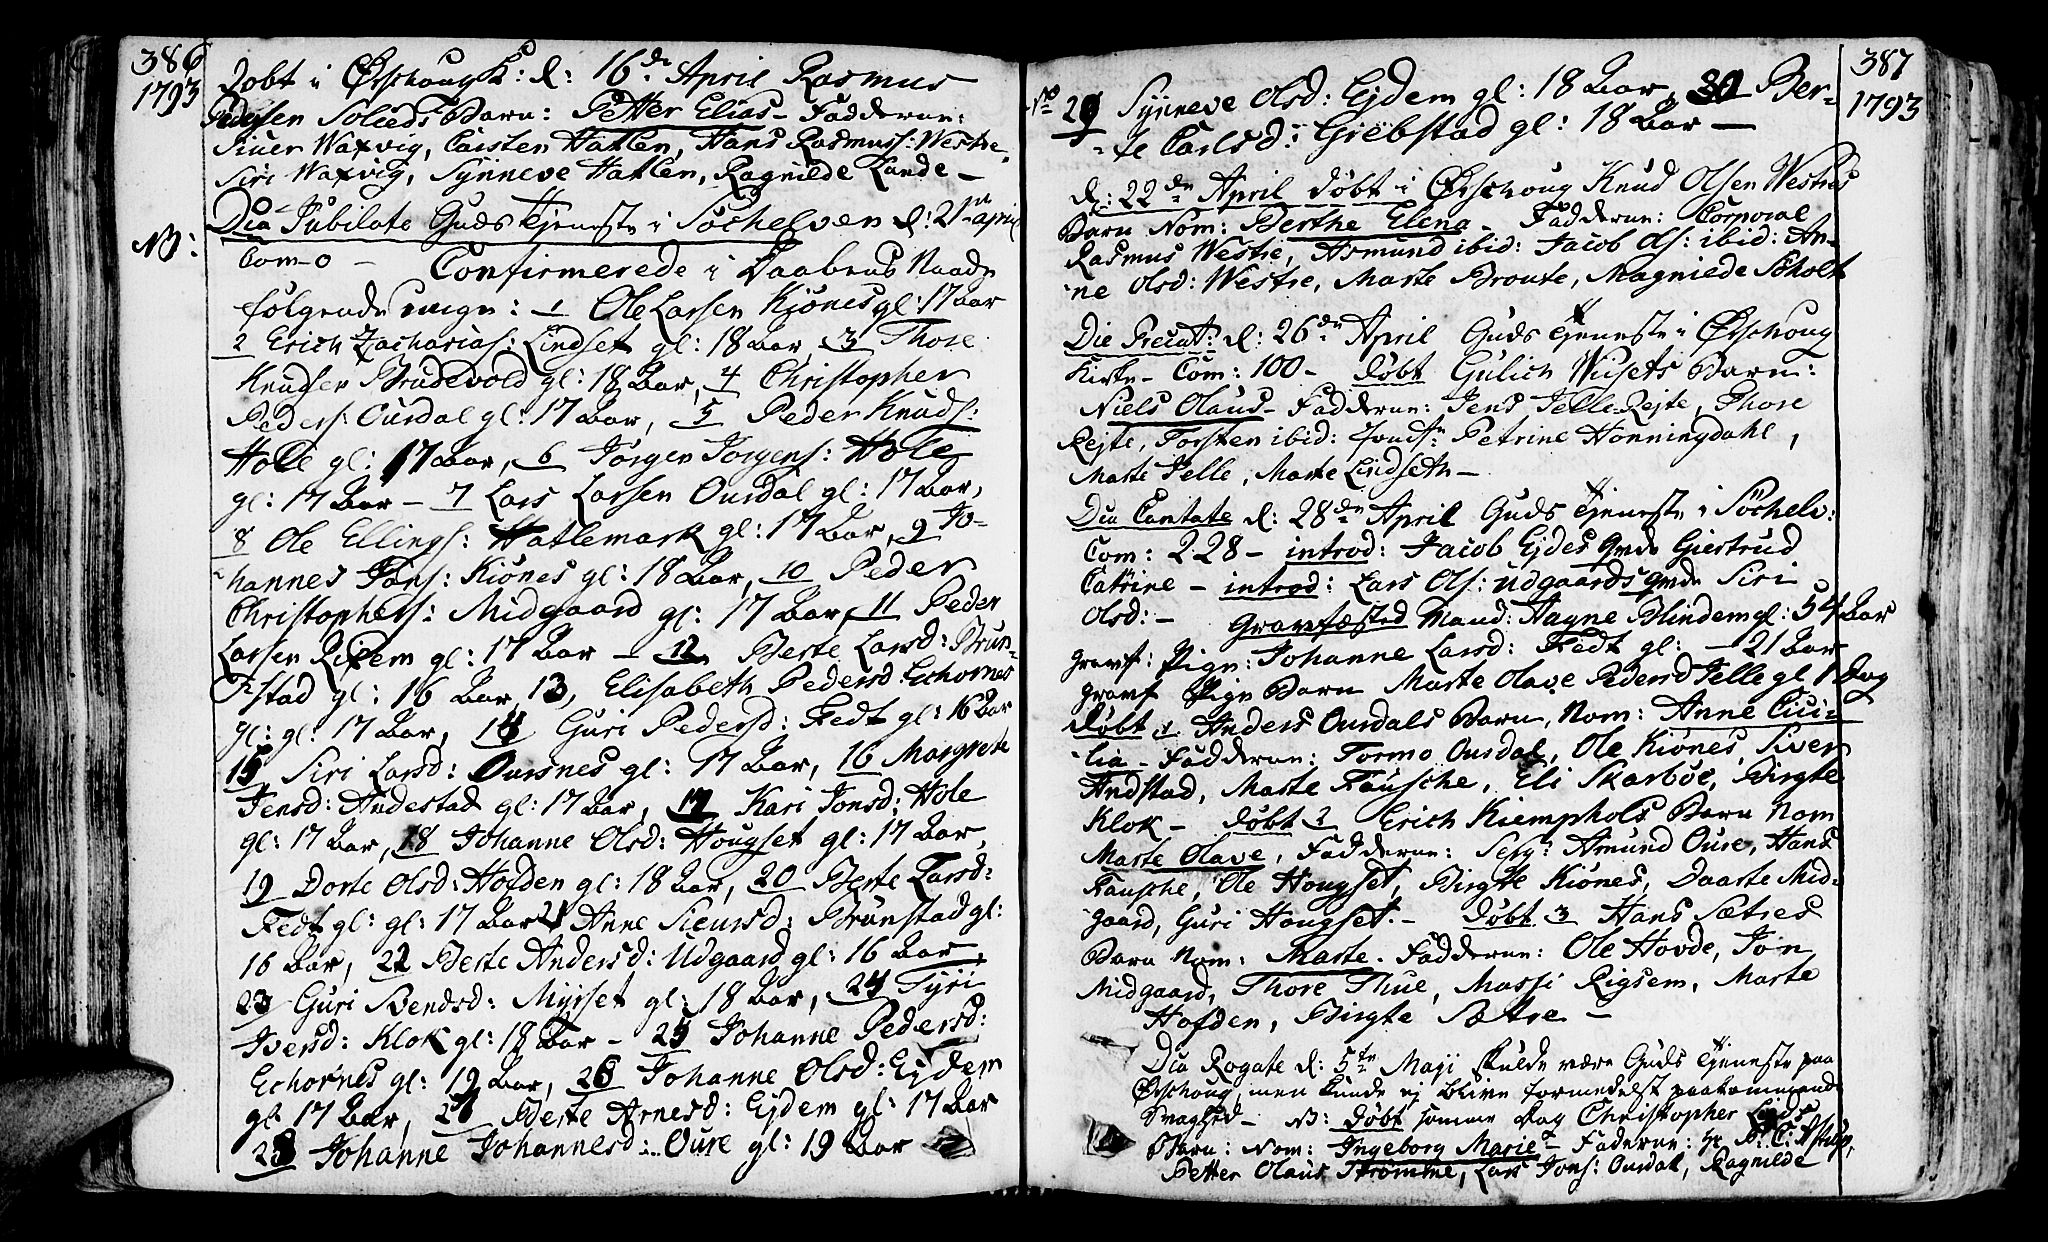 386
1793
Døbt i Ørschoug K: d: 16de April Rasmus
Pedersen Solieds Barn: Petter Elias – Fadderne:
Siuer Waxvig, Carsten Hatlen, Hans Rasmuss: Westre,
Siri Waxvig, Synneve Hatlen, Ragnilde Lande –
Dca Jubilate Guds Tjeneste i Søchelven d: 21de April
NB:
Com – 0 – Confirmerede i Daabens Naade
følgende unge: 1 Ole Larsen Kiønes gl: 17 Aar
2 Erich Zacharias: Lindset gl: 18 Aar, 3 Thore
Knudsen Brudevold gl: 18 Aar, 4 Christopher
Peders: Ourdal gl: 17 Aar, 5 Peder Knuds:
Holle gl: 17 Aar, 6 Jørgen Jørgens: Hole
gl: 17 Aar – 7 Lars Larsen Ourdal gl: 17 Aar,
8 Ole Ellings: Hatlemark gl: 17 Aar, 9 Jo-
hannes Jons: Kiønes gl: 18 Aar, 10 Peder
Christophers: Midgaard gl: 17 Aar, 11 Peder
Larsen Rixem gl: 17 Aar – 12 Berte Larsd: Brun-
stad gl: 16 Aar, 13, Elisabeth Pedersd Echornes
gl: gl: 17 Aar, 14 Guri Pedersd: Fedt gl: 16 Aar
15 Siri Larsd: Oursnes gl: 17 Aar, 16 Margrete
Jensd: Andestad gl: 17 Aar, 17 Kari Jonsd: Hole
gl: 17 Aar, 18 Johanne Olsd: Hougset gl: 17 Aar,
19 Dorte Olsd: Hofden gl: 18 Aar, 20 Berte Larsd:
Fedt gl: gl: 17 Aar 21 Anne Siuersd: Brunstad gl:
16 Aar, 22 Berte Andersd: Udgaard gl: 16 Aar,
23 Guri Svendsd: Myrset gl: 18 Aar, 24 Tyri
Iversd: Klok gl: 18 Aar – 25 Johanne Pedersd:
Echornes gl: 19 Aar, 26 Johanne Olsd: Ejdem
gl 17 Aar, 27 Berte Arnesd: Ejdem gl: 17 Aar
28 Johanne Johannesd: Oure gl: 19 Aar
387
1793
No 29 Synneve Olsd: Ejdem gl: 18 Aar, 30 Ber-
te Carlsd: Grebstad gl: 18 Aar –
d: 22de April døbt i Ørschoug Knud Olsen Westres
Barn Nom: Berthe Elena – Fadderne: Corporal
Rasmus Westre, Asmund ibid: Jacob Ols: ibid: An-
ne Olsd: Westre, Marte Broute, Magnilde Sholt
Die Precat: d: 26de April Guds Tjeneste i Ørschoug
Kirke – Com: 100 – døbt Gulich Wusets Barn:
Niels Olaus – Fadderne: Jens Jelle Rejte, Thore
Rejte, Torsten ibid: Petrine Honningdahl,
Marte Jelle, Marte Lindseth –
Dca Cantate d: 28de April Guds Tjeneste i Söchelv:
Com: 228 – introd: Jacob Ejdes qvde Giertrud
Catrine – introd: Lars Ols: Udgaards qvde Siri
Olsd: – Gravfæsted Mand: Aagne Blindem gl: 54 Aar
gravf: Pige: Johanne Larsd: Fedt gl: – 21 Aar
gravf Pige Barn Marte Olave Pedersd Jelle gl 1 Dag
Døbt 1 Anders Ourdals Barn, Nom: Anne Cici-
lia – Fadderne: Tormo Ourdal, Ole Kiønes, Siver
Andstad, Marte Fausche, Eli Skarbøe, Birgte
Klok – døbt 2 Erich Kiemphols Barn Nom
Marte Olave, Fadderne: Serg: Asmund Oure, Hans
Fausche, Ole Hougset, Birgte Kiønes, Daarte Mid-
gaard, Guri Hougset. – Døbt 3 Hans Sætres
Barn Nom: Marte – Fadderne: Ole Hovde, Jon
Midgaard, Thore Thue, Massi Rigsem, Marte
Hofden, Birgte Sætre –
Dca Rogate d: 5te Maji skulde være Guds Tjeneste paa
Ørschoug, men kunde ej blive formedelst paakommende
Svaghed – NB: Døbt samme Dag Christopher Linds
Barn: Nom: Ingeborg Marie – Fadderne: Astrup,
Petter Olaus Strømme, Lars Jons: Ourdal, Ragnilde